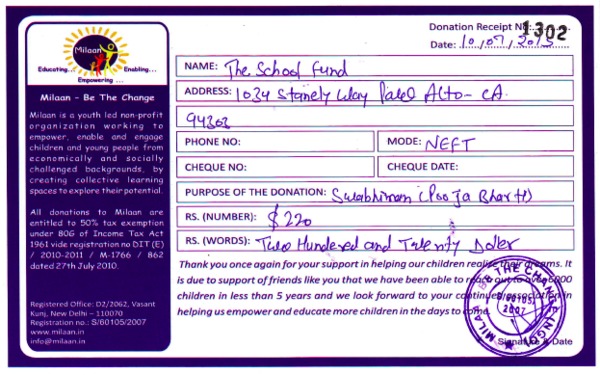 Milaan
Educating... Enabling...
Empowering ...
Milaan - Be The Change
Milaan is a youth led non-profit
organization working to
empower, enable and engage
children and young people from
economically and socially
challenged backgrounds, by
creating collective learning
spaces to explore their potential.
All donations to Milaan are
entitled to 50% tax exemption
under 80G of Income Tax Act
1961 vide registration no DIT (E)
/ 2010-2011 / M-1766 / 862
dated 27th July 2010.
Registered Office: D2/2062, Vasant
Kunj, New Delhi – 110070
Registration no.: S/60105/2007
www.milaan.in
info@milaan.in
Donation Receipt No: 1302
Date: 10/07/2013
NAME: The School Fund
ADDRESS: 1034 Stanely Way Palo Alto - CA
94303
PHONE NO: MODE: NEFT
CHEQUE NO: CHEQUE DATE:
PURPOSE OF THE DONATION: Swabhiman (Pooja Bharti)
RS. (NUMBER): $220
RS. (WORDS): Two Hundered and Twenty Doller
Thank you once again for your support in helping our children realize their dreams. It
is due to support of friends like you that we have been able to reach out to over 6000
children in less than 5 years and we look forward to your continued association in
helping us empower and educate more children in the days to come.
MILAAN BE THE CHANGE
S/60105
2007
Signature & Date